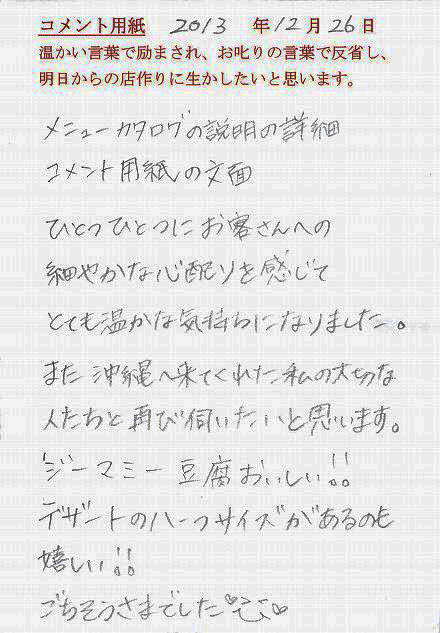 コメント用紙 2013 年12月26日
温かい言葉で励まされ、お叱りの言葉で反省し、
明日からの店作りに生かしたいと思います。
メニューカタログの説明の詳細
コメント用紙の文面
ひとつひとつにお客さんへの
細やかな心配りを感じて
とても温かな気持ちになりました。
また沖縄へ来てくれた私の大切な
人たちと再び伺いたいと思います。
ジーマミー豆腐おいしい!!
デザートのハーフサイズがあるのも
嬉しい!!
ごちそうさまでした♡